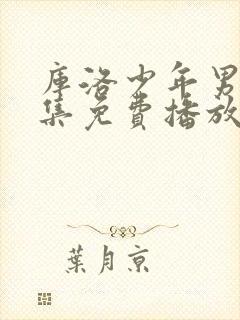 庫洛少年男
集免費播放
葉月京